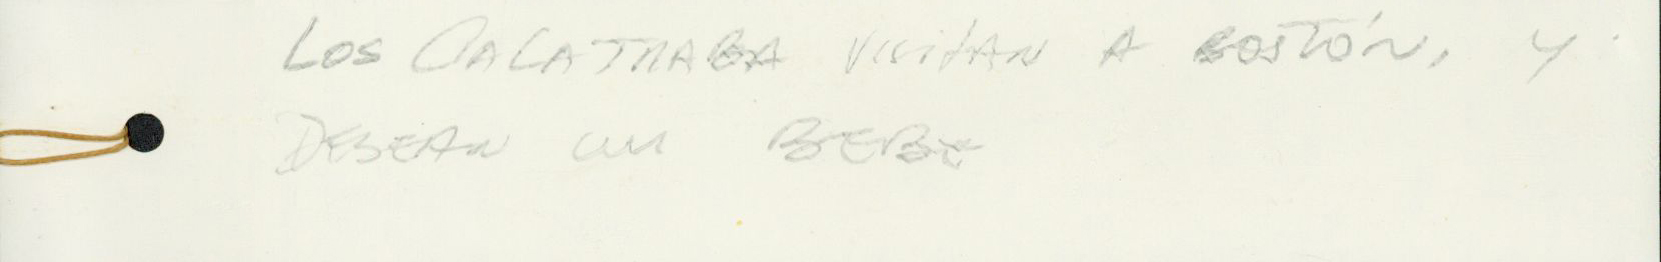 LOS CALATRABA VISITAN A BOSTÓN, Y
DESEAN UN BEBE